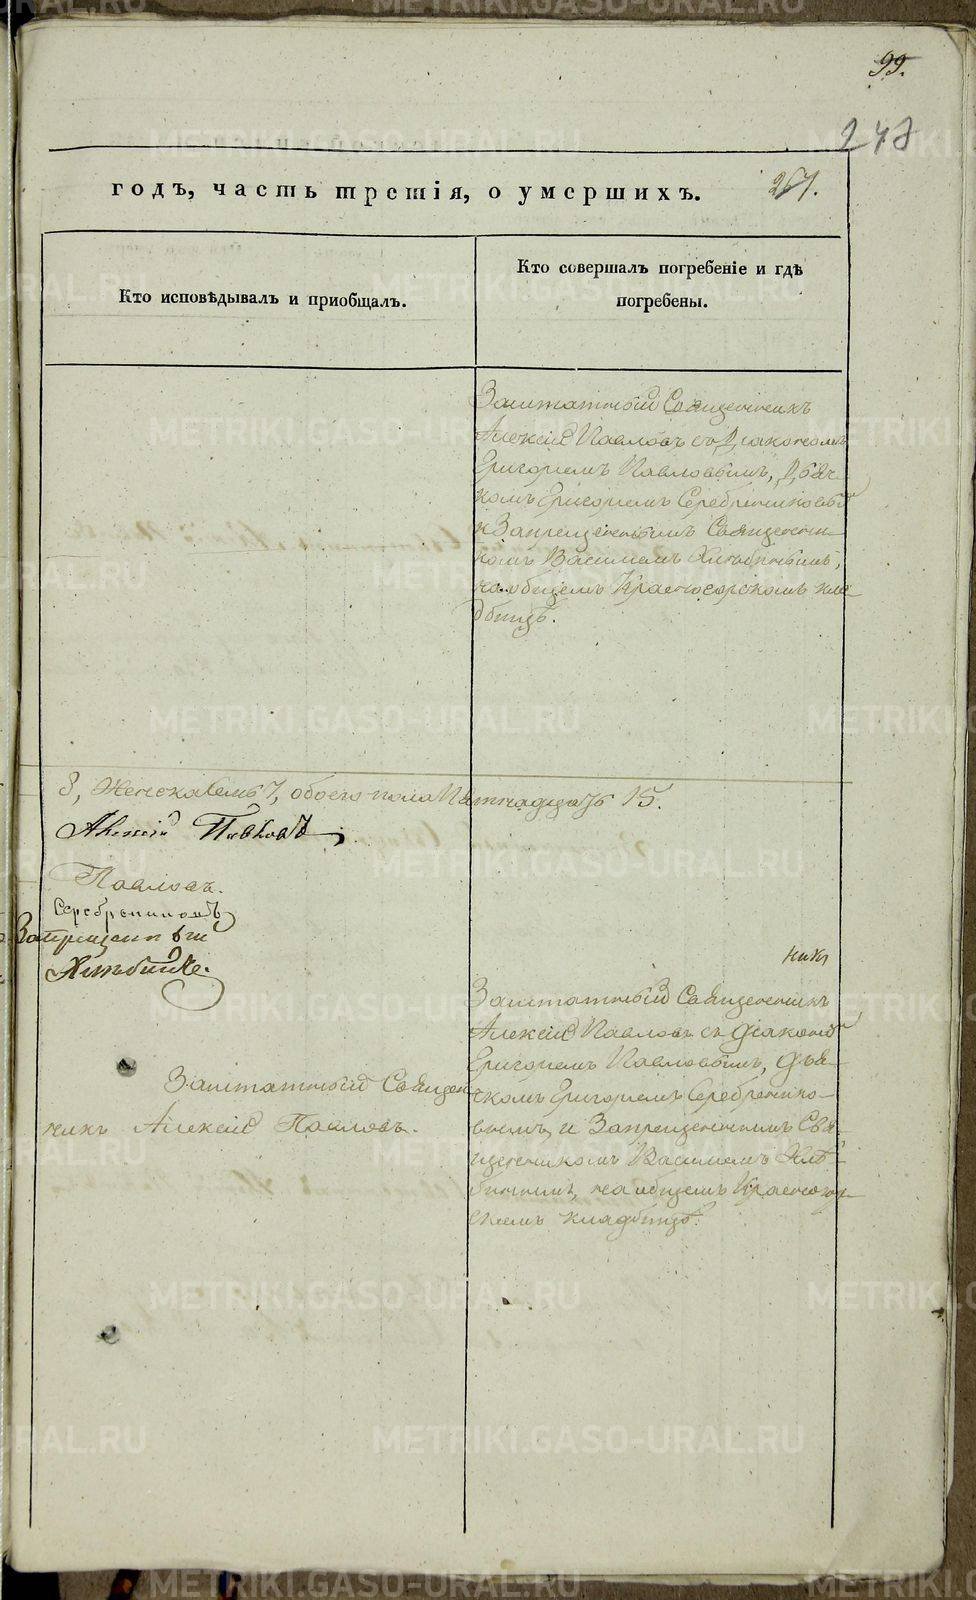 99.
247
годъ, часть третія, о умершихъ.
267.
Кто исповѣдывалъ и приобщалъ.
Кто совершалъ погребеніе и гдѣ
погребены.
Заштатный Священникъ
Алексій Павловъ съ Діакономъ
Григоріемъ Павловымъ, Дьяч-
комъ Григоріемъ Серебренниковымъ
и Запрещеннымъ Священни-
комъ Василіемъ Хлѣбинымъ,
на общемъ Красногорскомъ кла-
дбищѣ.
8, Женска семь 7, обоего пола Пятнадцать 15.
Алексій Павловъ
Павловъ.
Серебрениковъ
Запрещен
Заштатный Священ
никъ Алексій Павловъ.
Заштатный Священникъ
Алексій Павловъ съ Діакономъ
Григоріемъ Павловымъ, Дья-
чкомъ Григоріемъ Серебренико-
вымъ, и Запрещеннымъ Свя-
щенникомъ Василіемъ Хлѣ-
бинымъ, на общемъ Красногор-
скомъ кладбищѣ.
METRIKI.GASO-URAL.RU